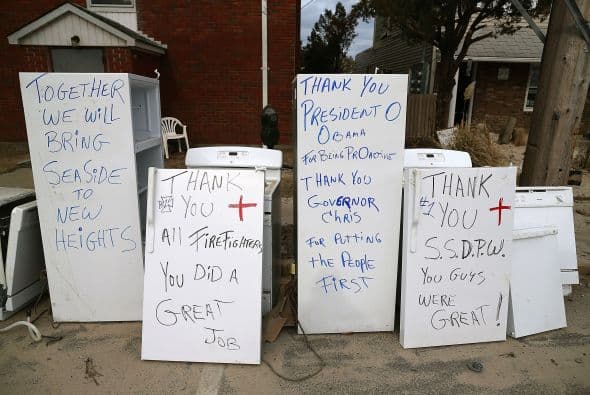 TOGETHER
WE WILL
BRING
SEASIDE
TO
NEW
HEIGHTS
THANK
YOU
All FIREFIGHTERS
YOU DID A
GREAT
JOB
THANK YOU
PRESIDENT O
OBAMA
FOR BEING PROACTIVE
THANK YOU
GOVERNOR
Chris
FOR PUTTING
the PEOPLE
FIRST
THANK
#1 YOU
S.S.D.P.W.
YOU GUYS
WERE
GREAT!